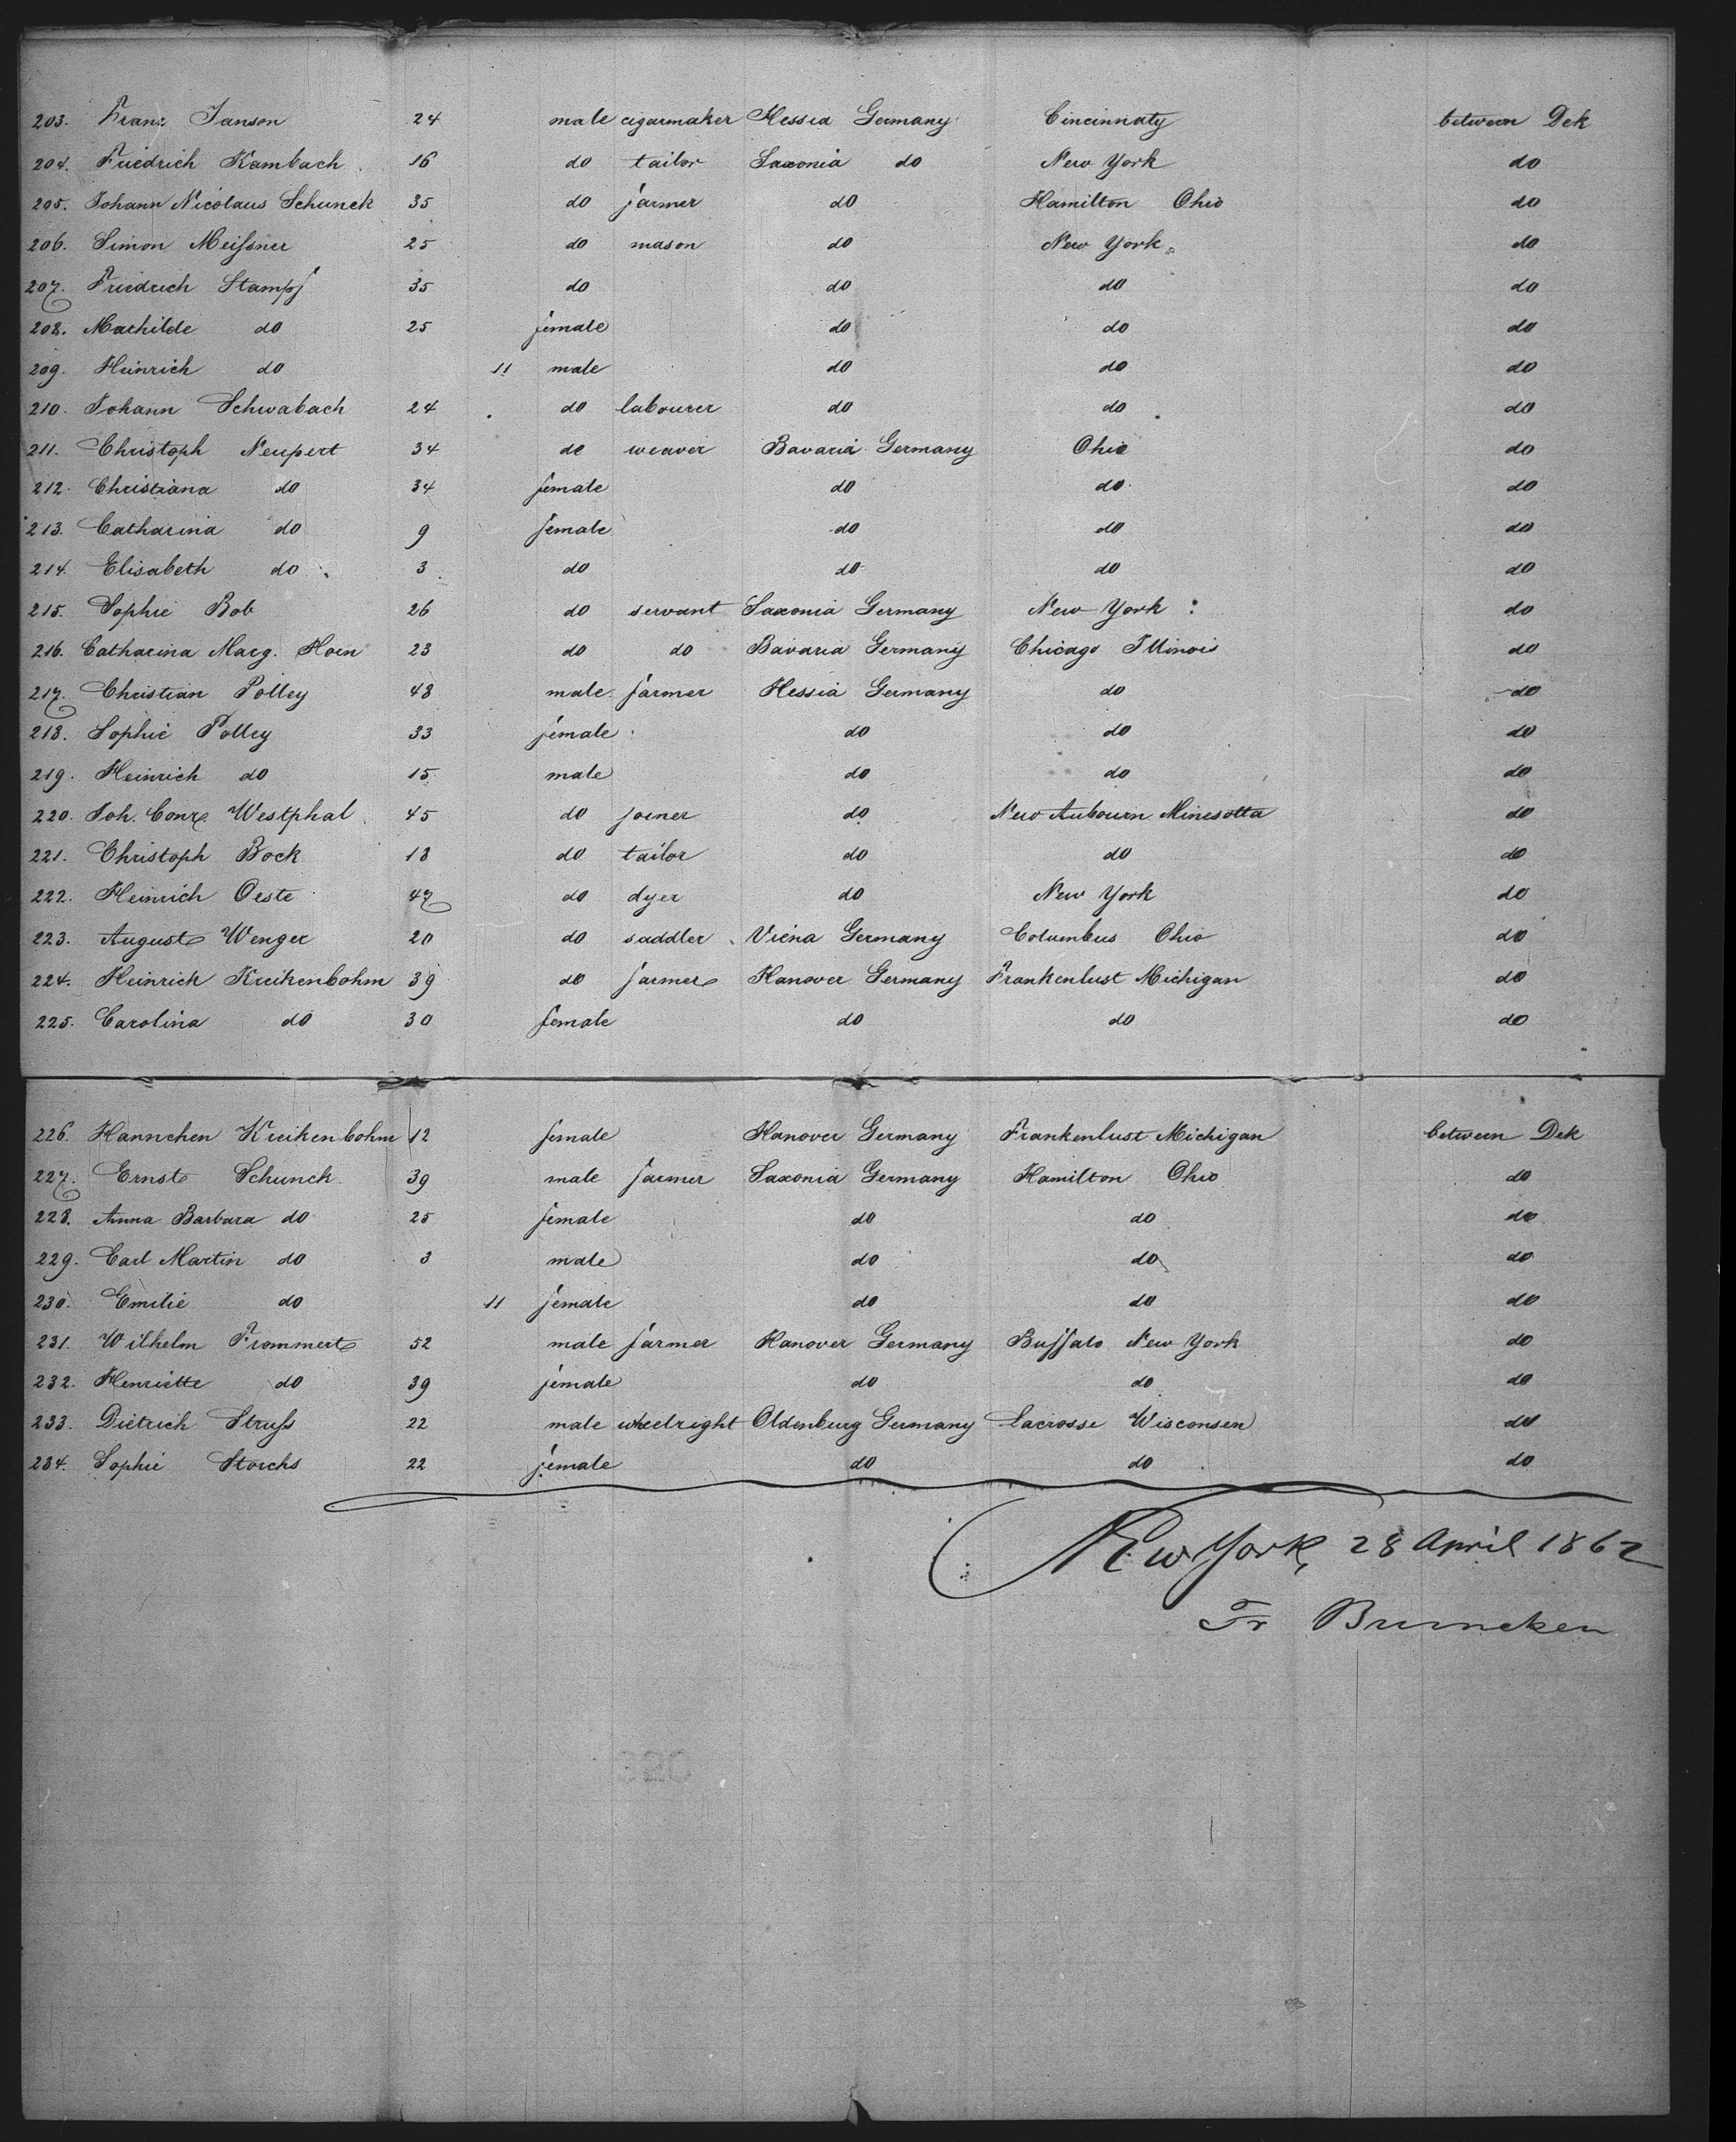 203. Franz Janson 24 male cigarmaker Hessia Germany Cincinnaty between Dek
204. Friedrich Kambach 16 do tailor Saxonia do New York do
205. Johann Nicolaus Schunck 35 do farmer do Hamilton Ohio do
206. Simon Meißner 25 do mason do New York do
207. Friedrich Stampf 35 do do do do
208. Mathilde do 25 female do do do
209. Heinrich do 11 male do do do
210. Johann Schwabach 24 do labourer do do do
211. Christoph Neupert 34 do weaver Bavaria Germany Ohio do
212. Christiana do 34 female do do do
213. Catharina do 9 female do do do
214. Elisabeth do 3 do do do do
215. Sophie Bob 26 do servant Saxonia Germany New York do
216. Catharina Marg. Horn 23 do do Bavaria Germany Chicago Illinois do
217. Christian Polley 48 male farmer Hessia Germany do do
218. Sophie Polley 33 female do do do
219. Heinrich do 15 male do do do
220. Joh. Conr Westphal 45 do joiner do New Aubourn Minesotta do
221. Christoph Bock 18 do tailor do do do
222. Heinrich Oeste 47 do dyer do New York do
223. August Wenger 20 do saddler Viena Germany Columbus Ohio do
224. Heinrich Kreikenbohm 39 do farmer Hanover Germany Frankenlust Michigan do
225. Carolina do 30 female do do do
226. Hannchen Kreikenbohm 12 female Hanover Germany Frankenlust Michigan between Dek
227. Ernst Schunck 39 male farmer Saxonia Germany Hamilton Ohio do
228. Anna Barbara do 25 female do do do
229. Carl Martin do 3 male do do do
230. Emilie do 11 female do do do
231. Wilhelm Frommert 52 male farmer Hanover Germany Buffalo New York do
232. Henriette do 39 female do do do
233. Dietrich Struß 22 male wheelright Oldenburg Germany Lacrosse Wisconsen do
234. Sophie Storchs 22 female do do do
New York, 28 April 1862
Fr Bruncken